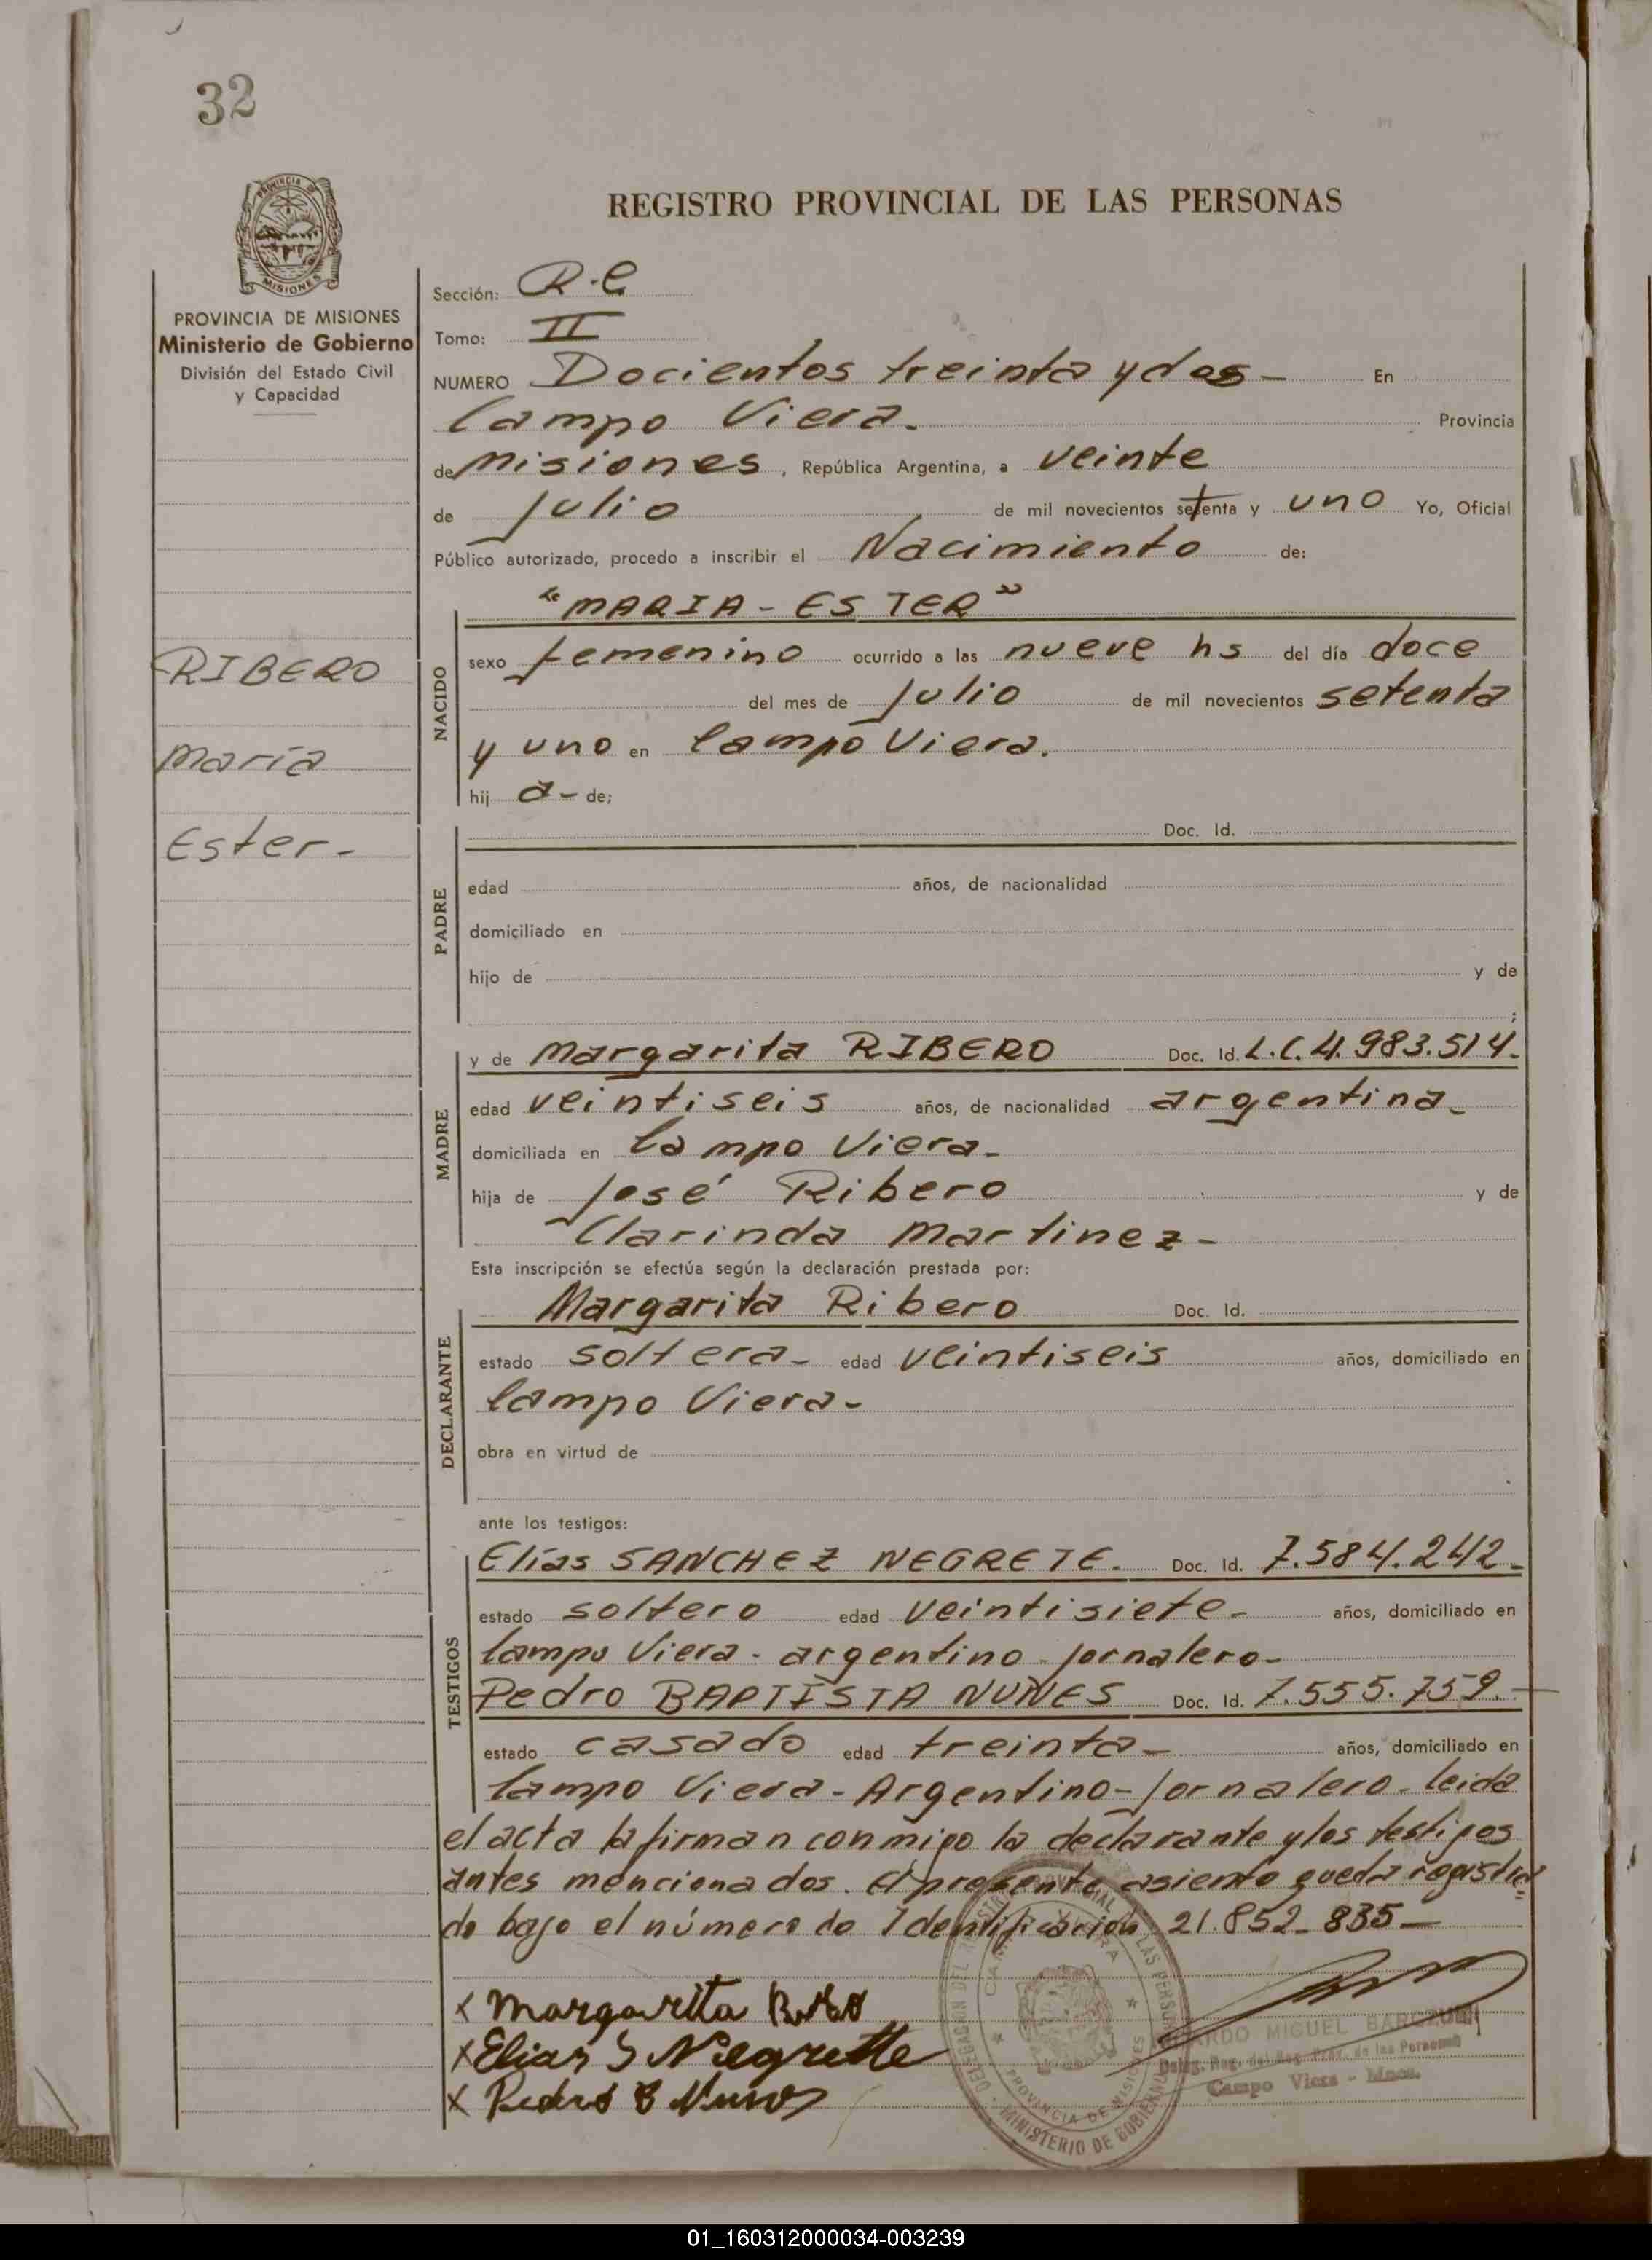 32
REGISTRO PROVINCIAL DE LAS PERSONAS
PROVINCIA DE MISIONES
Ministerio de Gobierno
División del Estado Civil
y Capacidad
RIBERO
María
Ester-
Sección: R.C
Tomo: II
NUMERO Docientos treinta y dos - En
Campo Viera. Provincia
de Misiones, República Argentina, a veinte
de Julio de mil novecientos setenta y uno Yo, Oficial
Público autorizado, procedo a inscribir el Nacimiento de:
NACIDO
"MARIA - ESTER"
sexo femenino ocurrido a las nueve hs del día doce
del mes de Julio de mil novecientos setenta
y uno en Campo Viera.
hij a- de;
PADRE
Doc. Id.
edad años, de nacionalidad
domiciliado en
hijo de y de
;
MADRE
y de Margarita RIBERO Doc. Id. L.C.4.983.514.
edad veintiseis años, de nacionalidad argentina-
domiciliada en Campo Viera-
hija de José Ribero y de
Clarinda Martinez-
Esta inscripción se efectúa según la declaración prestada por:
DECLARANTE
Margarita Ribero Doc. Id.
estado soltera- edad veintiseis años, domiciliado en
Campo Viera-
obra en virtud de
ante los testigos:
TESTIGOS
Elías SANCHEZ NEGRETE. Doc. Id. 7.584.242-
estado soltero edad veintisiete- años, domiciliado en
Campo Viera - argentino - Jornalero-
Pedro BAPTISTA NUNES Doc. Id. 7.555.759.-
estado casado edad treinta- años, domiciliado en
Campo Viera - Argentino - Jornalero. leida
el acta la firman conmigo la declarante y los testigos
antes mencionados. El presente asiento queda registra=
do bajo el número de Identificación 21.852-835-
x Margarita
x Elias S Negrette
x Pedro B Nunes
DELEGACION DEL REGISTRO PROVINCIAL DE LAS PERSONAS
CAMPO VIERA
PROVINCIA DE MISIONES
MINISTERIO DE GOBIERNO
MIGUEL
Campo Viera - Mnes.
01_160312000034-003239